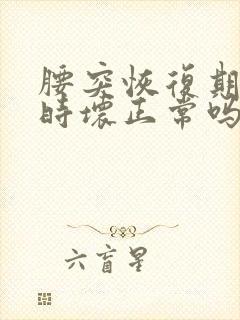 腰突恢復期
時壞正常吗
六盲星